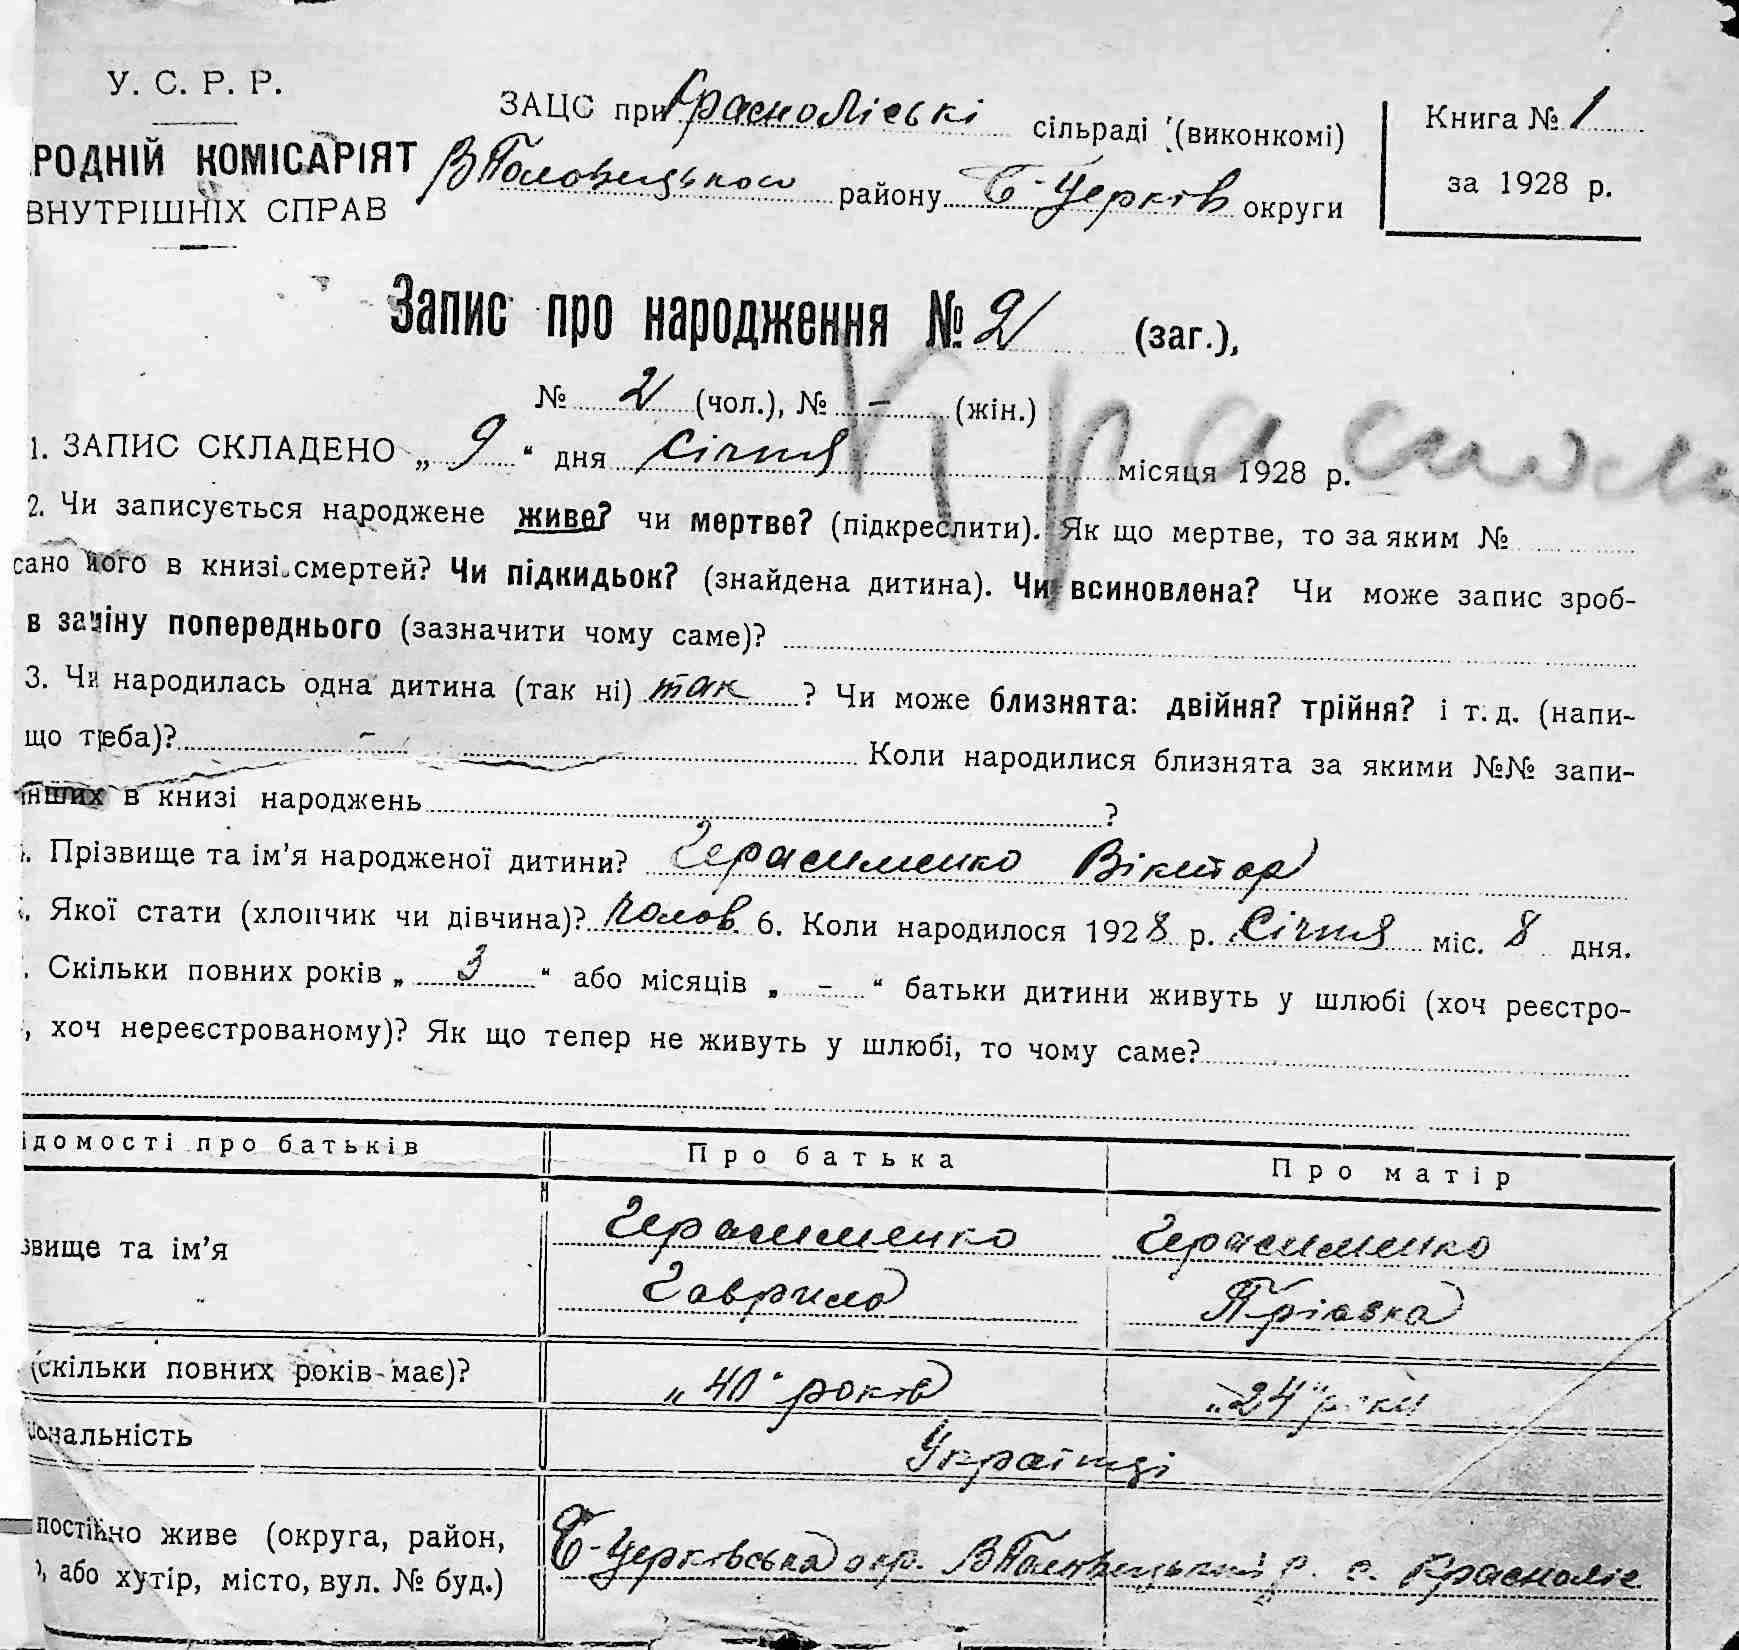 У. С. Р. Р.
РОДНІЙ КОМІСАРІЯТ
ВНУТРІШНІХ СПРАВ
ЗАЦС при Красноліські сільраді (виконкомі)
ВПоловецького району Б-Церків округи
Книга № 1
за 1928 р.
Запис про народження № 2 (заг.),
№ 2 (чол.), № - (жін.)
1. ЗАПИС СКЛАДЕНО „ 9 “ дня Січня місяця 1928 р.
2. Чи записується народжене живе? чи мертве? (підкреслити). Як що мертве, то за яким №
сано його в книзі смертей? Чи підкидьок? (знайдена дитина). Чи всиновлена? Чи може запис зроб-
в заміну попереднього (зазначити чому саме)?
3. Чи народилась одна дитина (так ні) так ? Чи може близнята: двійня? трійня? і т. д. (напи-
що треба)? - Коли народилися близнята за якими №№ запи-
інших в книзі народжень ?
. Прізвище та ім’я народженої дитини? Герасименко Віктор
. Якої стати (хлопчик чи дівчина)? чолов. 6. Коли народилося 1928 р. Січня міс. 8 дня.
. Скільки повних років „ 3 “ або місяців „ - “ батьки дитини живуть у шлюбі (хоч реєстро-
, хоч нереєстрованому)? Як що тепер не живуть у шлюбі, то чому саме?
ідомості про батьків Про батька Про матір
звище та ім’я Герасименко Герасименко
Гаврило
(скільки повних років має)? „40“ років „24“ роки
іональність Українці
постійно живе (округа, район,
), або хутір, місто, вул. № буд.)
Б-Церківська окр. ВПоловецький р. с. Красноліс